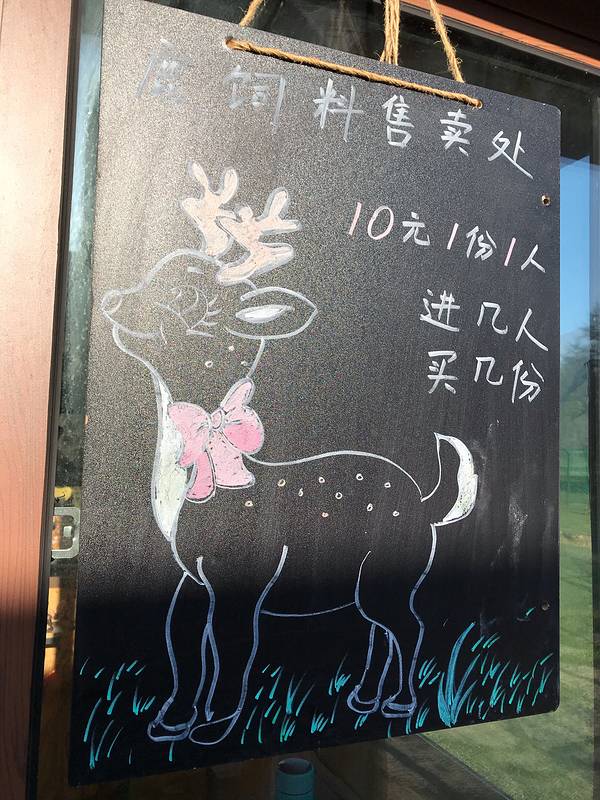 鹿饲料售卖处
10元1份1人
进几人
买几份